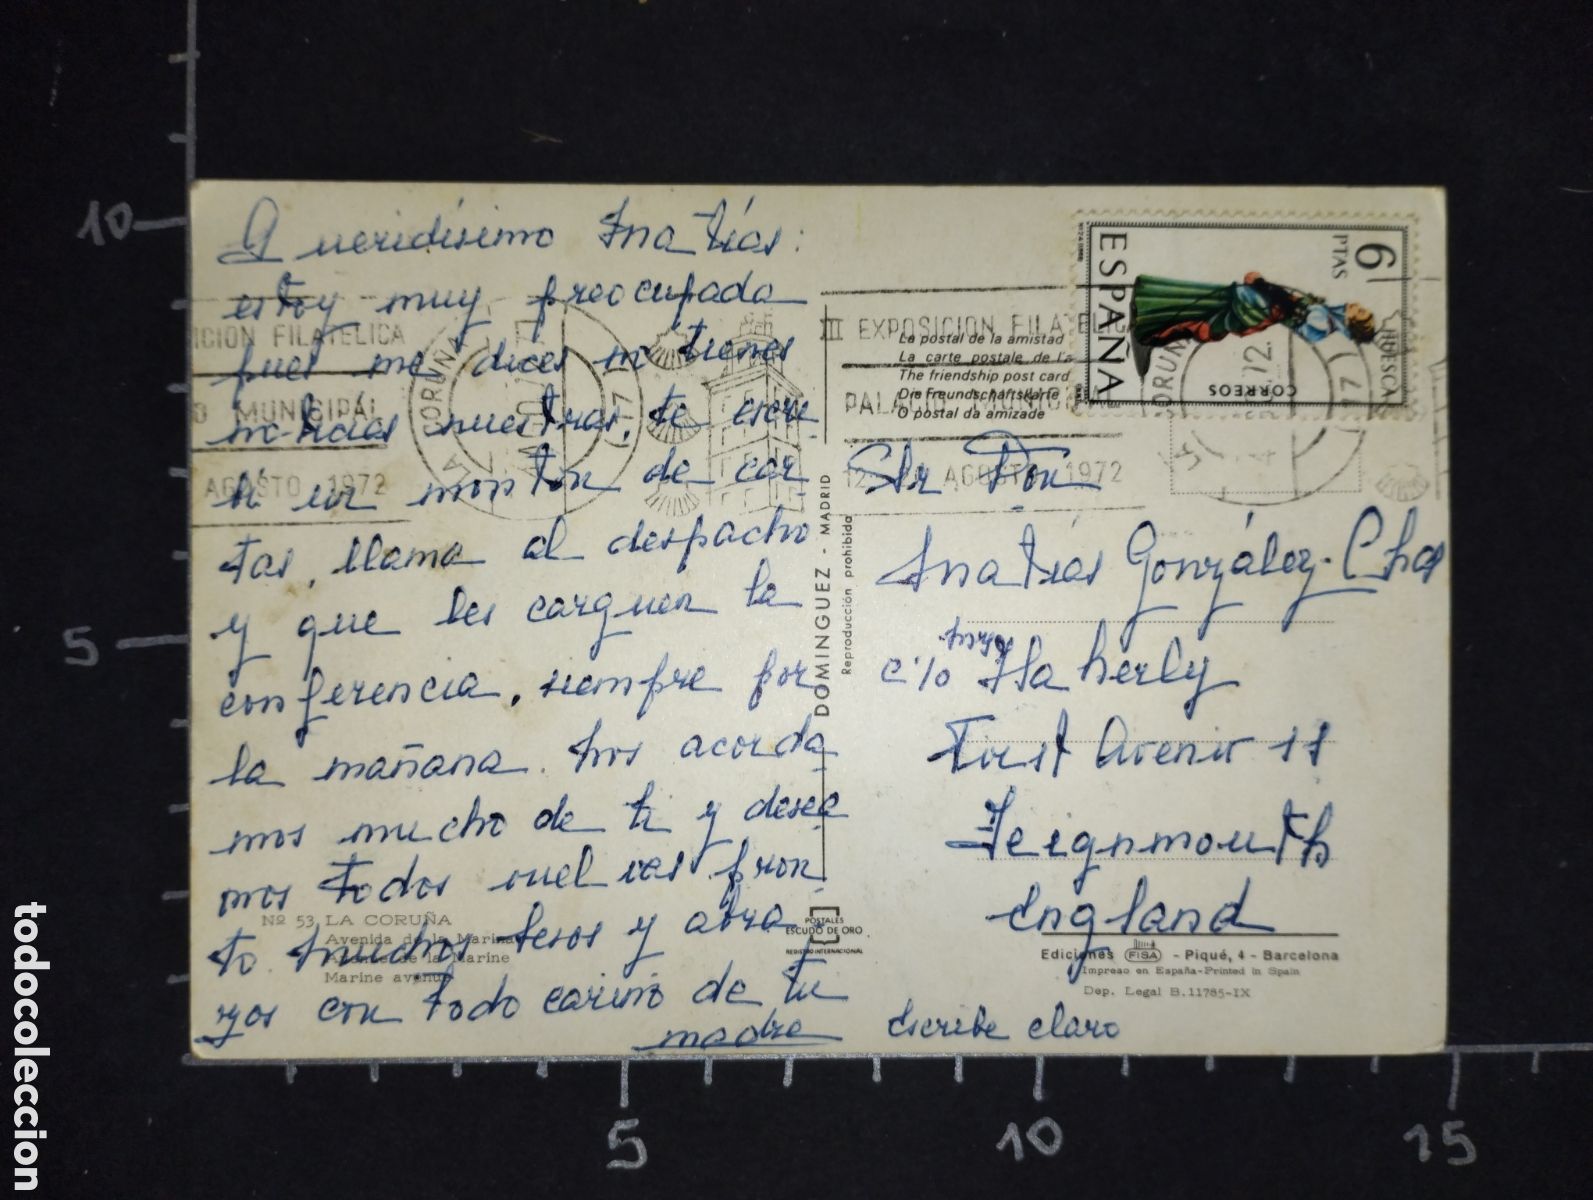 Queridísimo Anatías:
estoy muy preocupada
pues me dices no tienes
noticias nuestras, te escri
bi un monton de car
tas, llama al despacho
y que les carguen la
conferencia, siempre por
la mañana. Nos acorda
mos mucho de ti y desea
mos todos vuelvas pron
to muchos besos y abra
zos con todo cariño de tu
madre
Escribe claro
Sr Don
Anatías González-Chas
c/o Mrs Flaherly
First Avenir 11
Teignmouth
England
ICION FILATELICA
O MUNICIPAL
AGOSTO 1972
LA CORUÑA
III EXPOSICION FILATELICA
PALA MUNICI
12 AGOSTO 1972
CORUÑ
La postal de la amistad
La carte postale de l'a
The friendship post card
Die Freundschaftskarte
O postal da amizade
6
PTAS
ESPAÑA
HUESCA
CORREOS
DOMINGUEZ - MADRID
Reproducción prohibida
Nº 53, LA CORUÑA
Avenida de la Marina
Avenue de la Marine
Marine avenue
POSTALES
ESCUDO DE ORO
REGISTRO INTERNACIONAL
Ediciones FISA - Piqué, 4 - Barcelona
Impreso en España-Printed in Spain
Dep. Legal B.11785-IX
10
5
5
10
15
todocoleccion